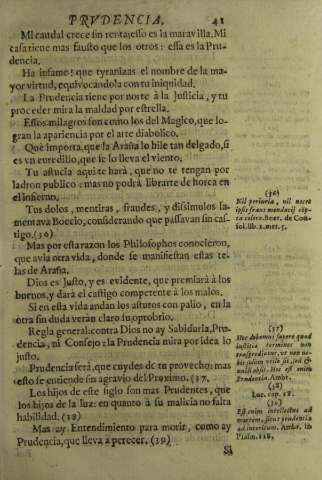 PRVDENCIA. 41
Mi caudal crece sin rentas, esso es la maravilla. Mi
casa tiene mas fausto que los otros: essa es la Pru-
dencia.
Ha infame! que tyranizas el nombre de la ma-
yor virtud, equivocandola con tu iniquidad.
La Prudencia tiene por norte à la Justicia, y tu
proceder mira la maldad por estrella.
Essos milagros son como los del Magico, que lo-
gran la apariencia por el arte diabolico.
Què importa, que la Araña lo hile tan delgado, si
es vn enredillo, que se lo lleva el viento.
Tu astucia aqui te harà, que no te tengan por
ladron publico: mas no podrà librarte de horca en
el infierno.
Tus dolos, mentiras, fraudes, y dissimulos la-
mentava Boecio, considerando que passavan sin cas-
tigo. (36)
Mas por esta razon los Philosophos conocieron,
que avia otra vida, donde se manifiestan estas te-
las de Araña.
Dios es Justo, y es evidente, que premiarà à los
buenos, y darà el castigo competente à los malos.
Si en esta vida andan los astutos con palio, en la
otra sin duda veràn claro su oprobrio.
Regla general: contra Dios no ay Sabiduria, Pru-
dencia, ni Consejo: la Prudencia mira por idea lo
justo.
Prudencia serà, que cuydes de tu provecho: mas
esto se entiende sin agravio del Proximo. (37)
Los hijos de este siglo son mas Prudentes, que
los hijos de la luz: en quanto à su malicia no falta
habilidad. (38)
Mas ay. Entendimiento para morir, como ay
Prudencia, que lleva à perecer. (39)
Si
(36)
Nil periuria, nil nocet
ipsis fraus mendaci
colore. Boet. de Con-
sol. lib. 1. met. 5.
(37)
Hoc debemus sapere quod
justitia terminos non
transgrediatur, ut non no-
bis solum utile sit, sed &
nulli obsit. Hoc est enim
Prudentia. Ambr.
(38)
Luc. cap. 16.
(39)
Est enim intellectus ad
mortem, sicut prudentia
ad interitum. Ambr. in
Psalm. 118.